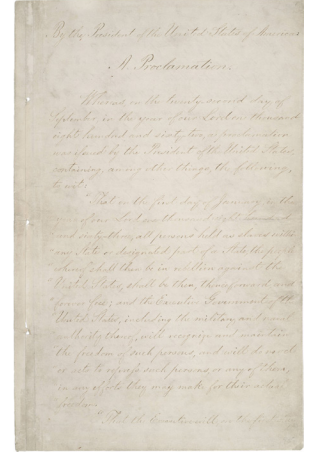 By the President of the United States of America:
A Proclamation.
Whereas, on the twenty-second day of
September, in the year of our Lord one thousand
eight hundred and sixty-two, a proclamation
was issued by the President of the United States,
containing, among other things, the following,
to wit:
"That on the first day of January, in the
year of our Lord one thousand eight hundred
and sixty-three, all persons held as slaves within
any State or designated part of a State, the people
whereof shall then be in rebellion against the
United States, shall be then, thenceforward, and
forever free; and the Executive Government of the
United States, including the military and naval
authority thereof, will recognize and maintain
the freedom of such persons, and will do no act
or acts to repress such persons, or any of them,
in any efforts they may make for their actual
freedom.
"That the Executive will, on the first